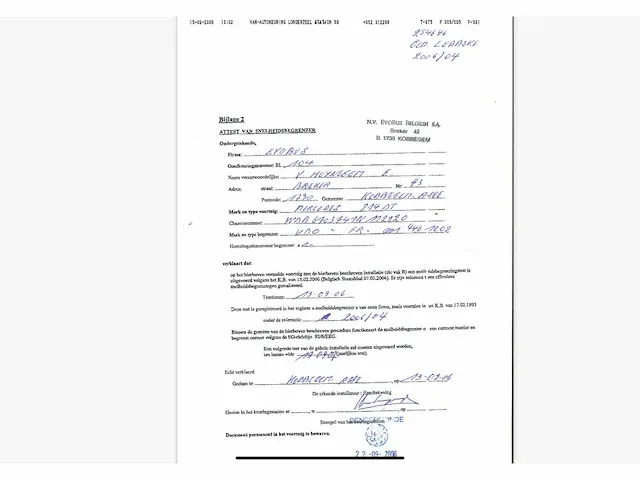 15-09-2006 13:02 VAN-AUTOKEURING LONDERZEEL STATION 58 +052 312298 T-975 P 005/005 F-361
274646
2006/04
Bijlage 2
N.V. EVOBUS BELGIUM S.A.
Breker 43
B 1730 KOBBEGEM
ATTEST VAN SNELHEIDSBEGRENZER
Ondergetekende,
Firma: EVOBUS
Goedkeuringsnummer: BL 104
Naam verantwoordelijke: V. HUYNEGEM E.
Adres: straat: BREKER Nr: 43
Postcode: 1730 Gemeente: KOBBEGEM ASSE
Merk en type voertuig: MERCEDES
Chassisnummer:
Merk en type begrenzer: VDO - FR -
Homologatienummer begrenzer: e
verklaart dat:
op het hierboven vermelde voertuig met de hierboven beschreven installatie (zie vak B) een snelheidsbegrenzingstest is
uitgevoerd volgens het K.B. van 15.02.2006 (Belgisch Staatsblad 07.03.2006). Er zijn minstens 1 test effectieve
snelheidsbegrenzingen gerealiseerd.
Testdatum: 19-09-06
Deze test is geregistreerd in het register « snelheidsbegrenzer » van onze firma, zoals voorzien in het K.B. van 17.02.1993
onder de referentie 2006/04
Binnen de grenzen van de hierboven beschreven procedure functioneert de snelheidsbegrenzer op een correcte manier en
begrenst correct volgens de EG-richtlijn 92/6/EEG.
Een volgende test van de gehele installatie zal moeten uitgevoerd worden,
ten laatste vóór (jaarlijkse test).
Echt verklaard
Gedaan te KOBBEGEM ASSE, op 19-09-06
De erkende installateur : Handtekening
Gezien in het keuringsstation nr , te , op
Stempel van het keuringsstation
Document permanent in het voertuig te bewaren.
22-09-2006